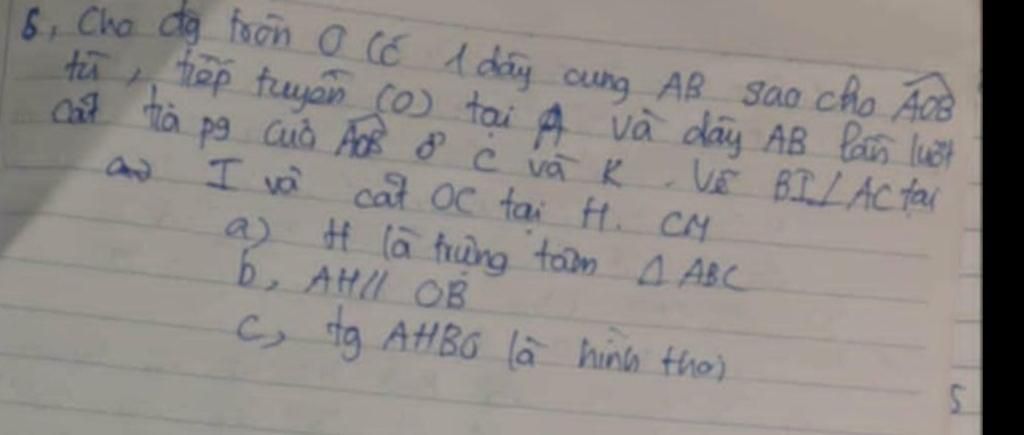 6, Cho đg tròn O có 1 dây cung AB sao cho AOB
tù, tiếp tuyến (O) tại A và dây AB lần lượt
cắt tia pg của AOB ở C và K. Vẽ BI⊥AC tại
I và cắt OC tại H. CM
a) H là trùng tâm Δ ABC
b, AH// OB
c, tg AHBO là hình thoi
5